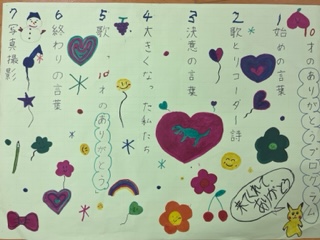 10才のありがとうプログラム
1 始めの言葉
2 歌とリコーダー詩
3 決意の言葉
4 大きくなった私たち
5 歌、10才のありがとう
6 終わりの言葉
7 写真撮影
来てくれて、
ありがとう